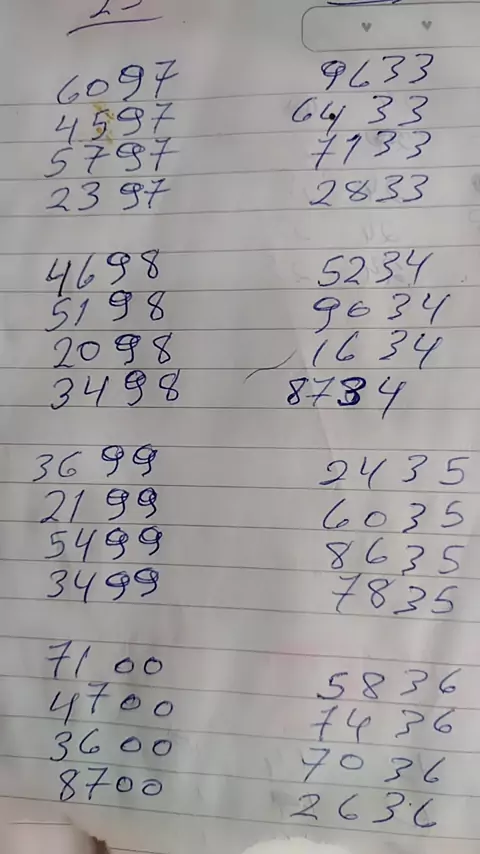 6097
4597
5797
2397
4698
5198
2098
3498
3699
2199
5499
3499
7100
4700
3600
8700
9633
6433
7133
2833
5234
9634
1634
8734
2435
6035
8635
7835
5836
7436
7036
2636